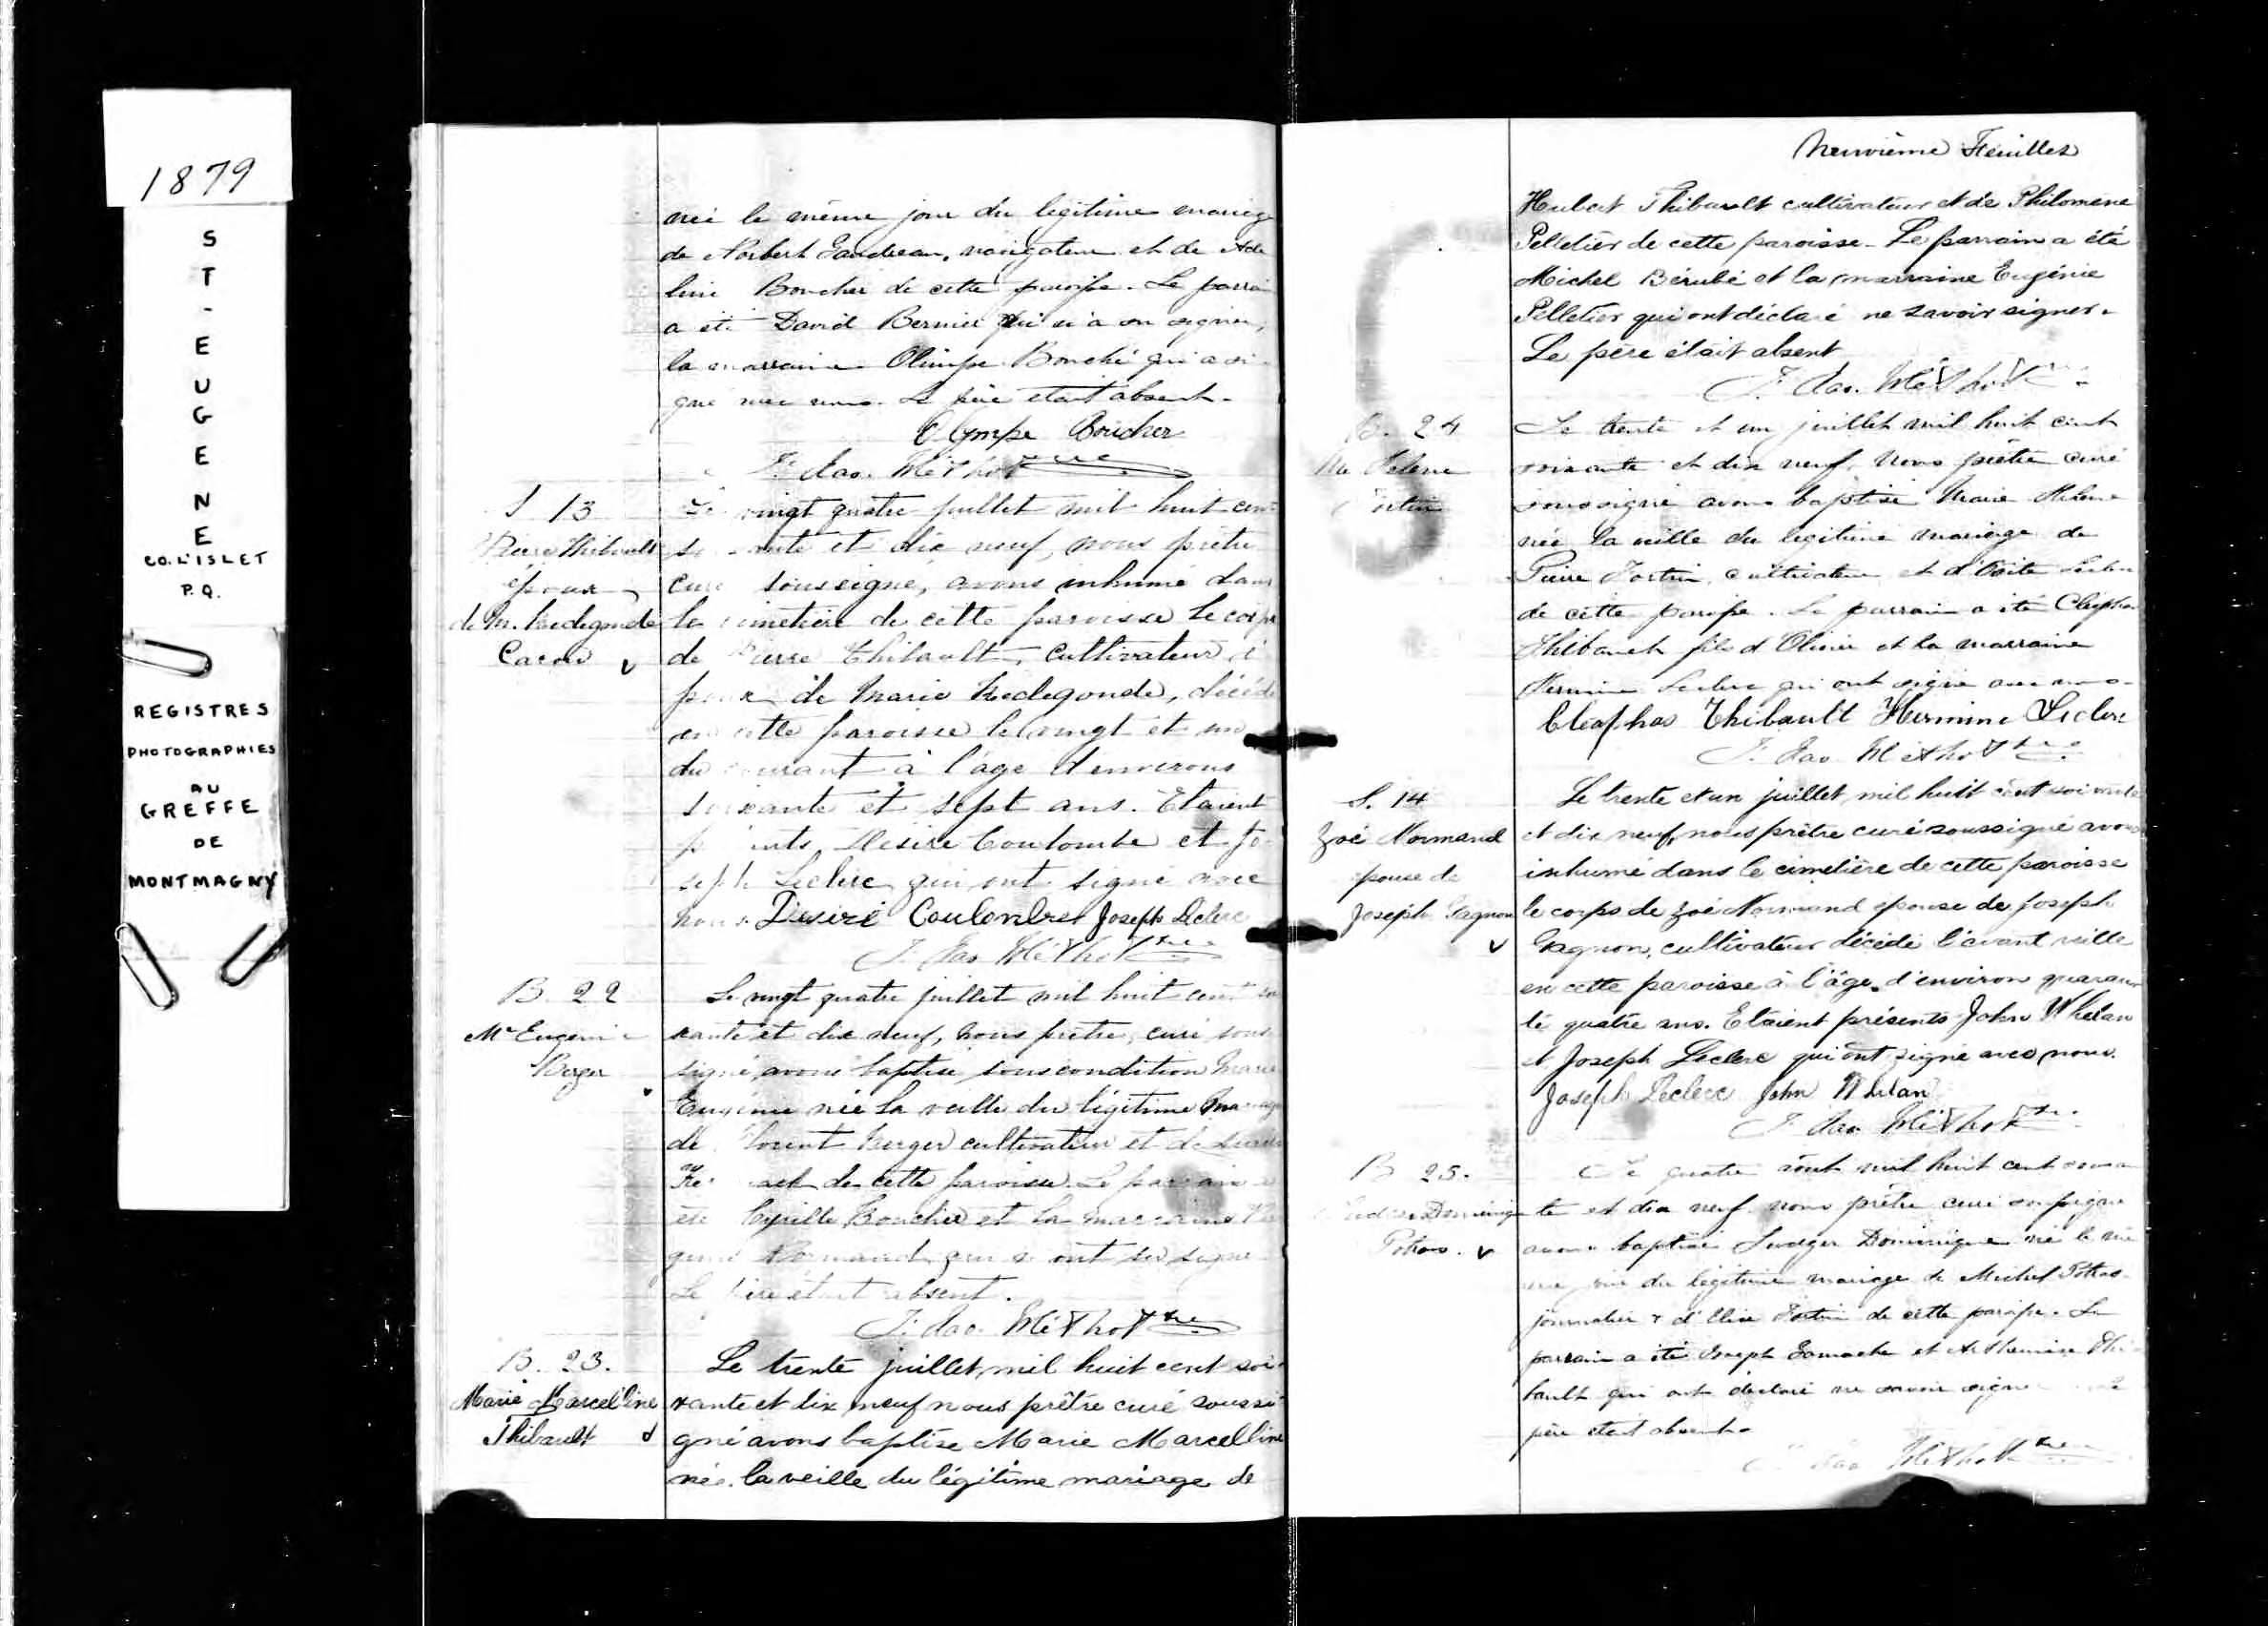 1879
ST-EUGENE
CO. L'ISLET
P.Q.
REGISTRES
PHOTOGRAPHIES
AU
GREFFE
DE
MONTMAGNY
née le même jour du légitime mariage
de Norbert Gaudreau, navigateur et de Ade
line Boucher de cette paroisse. Le parrain
a été David Bernier qui n'a su signer,
la marraine Olimpe Bouché qui a si
gné avec nous. Le père était absent.
Olympe Boucher
F. Méthot Ptre
S 13
Pierre Thibault
époux
de M. Redegonde
Caron
Le vingt quatre juillet mil huit cent
soixante et dix neuf, nous prêtre
curé soussigné, avons inhumé dans
le cimetière de cette paroisse le corps
de Pierre Thibault, cultivateur é
poux de Marie Redegonde, décédé
en cette paroisse le vingt et un
du courant à l'âge d'environs
soixante et sept ans. Etaient
présents, Desire Coulombe et Jo
seph Leclerc qui ont signé avec
nous. Desiré Coulombe Joseph Leclerc
F. Méthot Ptre
B. 22
Me Eugenie
Berger
Le vingt quatre juillet mil huit cent soi
xante et dix neuf, nous prêtre, curé sous
signé, avons baptisé sous condition Marie
Eugénie née la veille du légitime mariage
de Florent Berger cultivateur et de
de cette paroisse. Le parrain a
été Cyrille Boucher et la marraine
Normand qui n'ont su signer
Le père était absent.
F. Méthot Ptre
B. 23.
Marie Marcelline
Thibault
Le trente juillet, mil huit cent soi-
xante et dix neuf nous prêtre curé soussi
gné avons baptise Marie Marcelline
née la veille du légitime mariage de
Neuvième Feuillet
Hubert Thibault cultivateur et de Philomène
Pelletier de cette paroisse. Le parrain a été
Michel Bérubé et la marraine Eugénie
Pelletier qui ont déclaré ne savoir signer.
Le père était absent
F. Méthot Ptre
B. 24
Me Helene
Fortin
Le trente et un juillet mil huit cent
soixante et dix neuf, Nous prêtre curé
soussigné avons baptisé Marie Helene
née la veille du légitime mariage de
Pierre Fortin, cultivateur et d'
de cette paroisse. Le parrain a été Cléophas
Thibault fils d'Olivier et la marraine
Hermine Leclerc qui ont signé avec nous.
Cléophas Thibault Hermine Leclerc
F. Méthot Ptre
S. 14
Zoé Normand
epouse de
Joseph Gagnon
Le trente et un juillet, mil huit cent soixante
et dix neuf, nous prêtre curé soussigné avons
inhumé dans le cimetière de cette paroisse
le corps de Zoé Normand epouse de Joseph
Gagnon, cultivateur décédé l'avant veille
en cette paroisse à l'âge d'environ quaran
te quatre ans. Etaient présents John Whelan
et Joseph Leclerc qui ont signé avec nous.
Joseph Leclerc John Whelan
F. Méthot Ptre
B 25.
Dominique
Potras.
Le quatre août mil huit cent soixan
te et dix neuf nous prêtre curé soussigné
avons baptisé Dominique né le mê
me jour du légitime mariage de Michel Potras
journalier & d'Elise Fortin de cette paroisse. Le
parrain a été Joseph Gamache et Arthemise Thi
bault qui ont déclaré ne savoir signer Le
père était absent.
Méthot Ptre